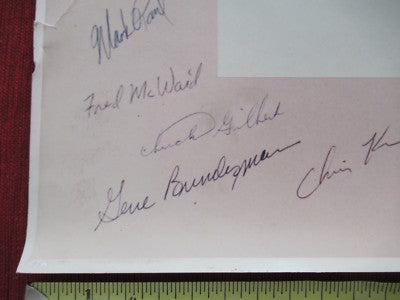 Mark
Fred McWaid
Chuck Gilbert
Gene Brundegman
Chris
1
2
3